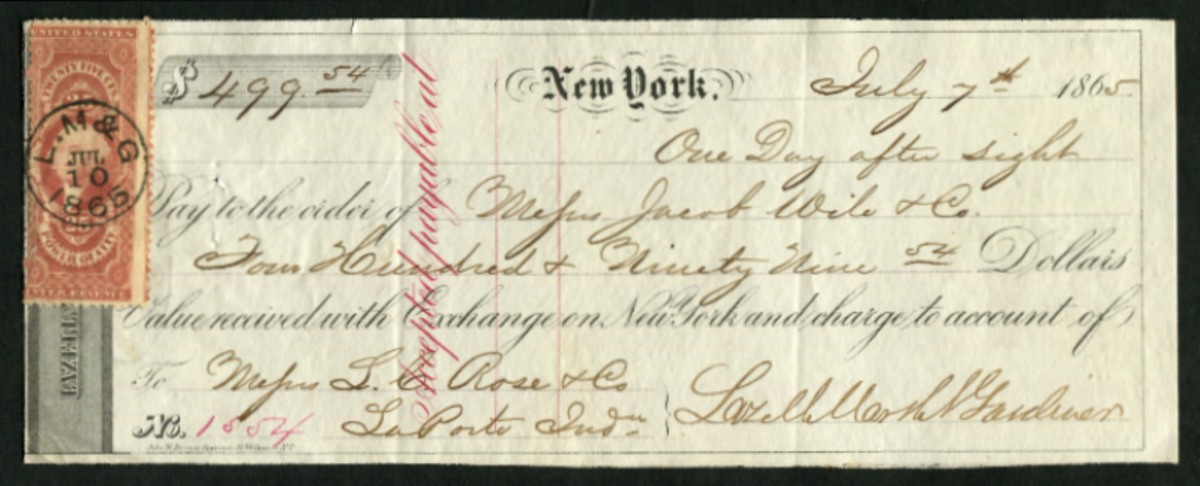 UNITED STATES
TWENTY FIVE CENTS
L. M & G
JUL
10
1865
POWER OF ATT'Y
INTER. REVENUE
$ 499. 54
New York. July 7th 1865
One Day after sight
Pay to the order of Messrs Jacob Wile & Co.
Four Hundred & Ninety Nine 54 Dollars
Value received with Exchange on New York and charge to account of
To Messrs L. C. Rose & Co
Lazell Marsh & Gardiner
No. 1554 La Porte Inda
Accepted payable at